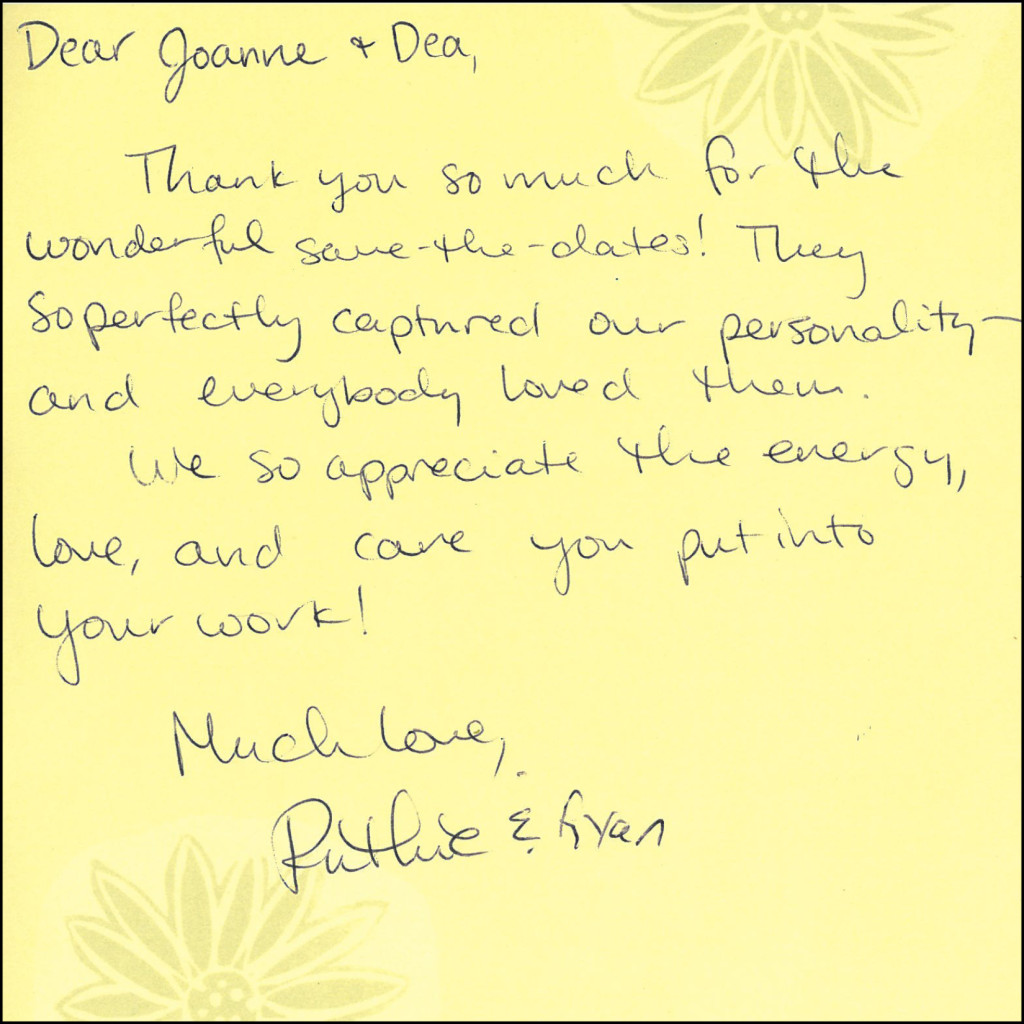 Dear Joanne + Dea,
Thank you so much for the
wonderful save-the-dates! They
so perfectly captured our personality—
and everybody loved them.
We so appreciate the energy,
love, and care you put into
your work!
Much love,
Ruthie & Ryan